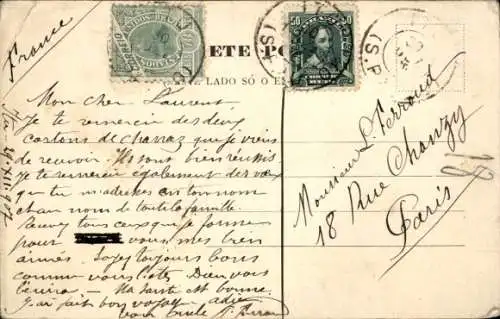 France
ETE PO
LADO SÓ O E
50
(S.P.
Mon cher Laurent,
Je te remercie des deux
cartons de que je viens
de recevoir. Ils sont bien réussis
Je te remercie également des vœux
que tu m'adresses en ton nom
et au nom de toute la famille.
tous ceux que je forme
pour vous, mes bien
aimés. Soyez toujours bons
comme vous l'êtes. Dieu vous
bénira - Ma santé est bonne.
J'ai fait bon voyage, adieu
oncle
Monsieur L. Perroud
18 Rue Chanzy
Paris
18